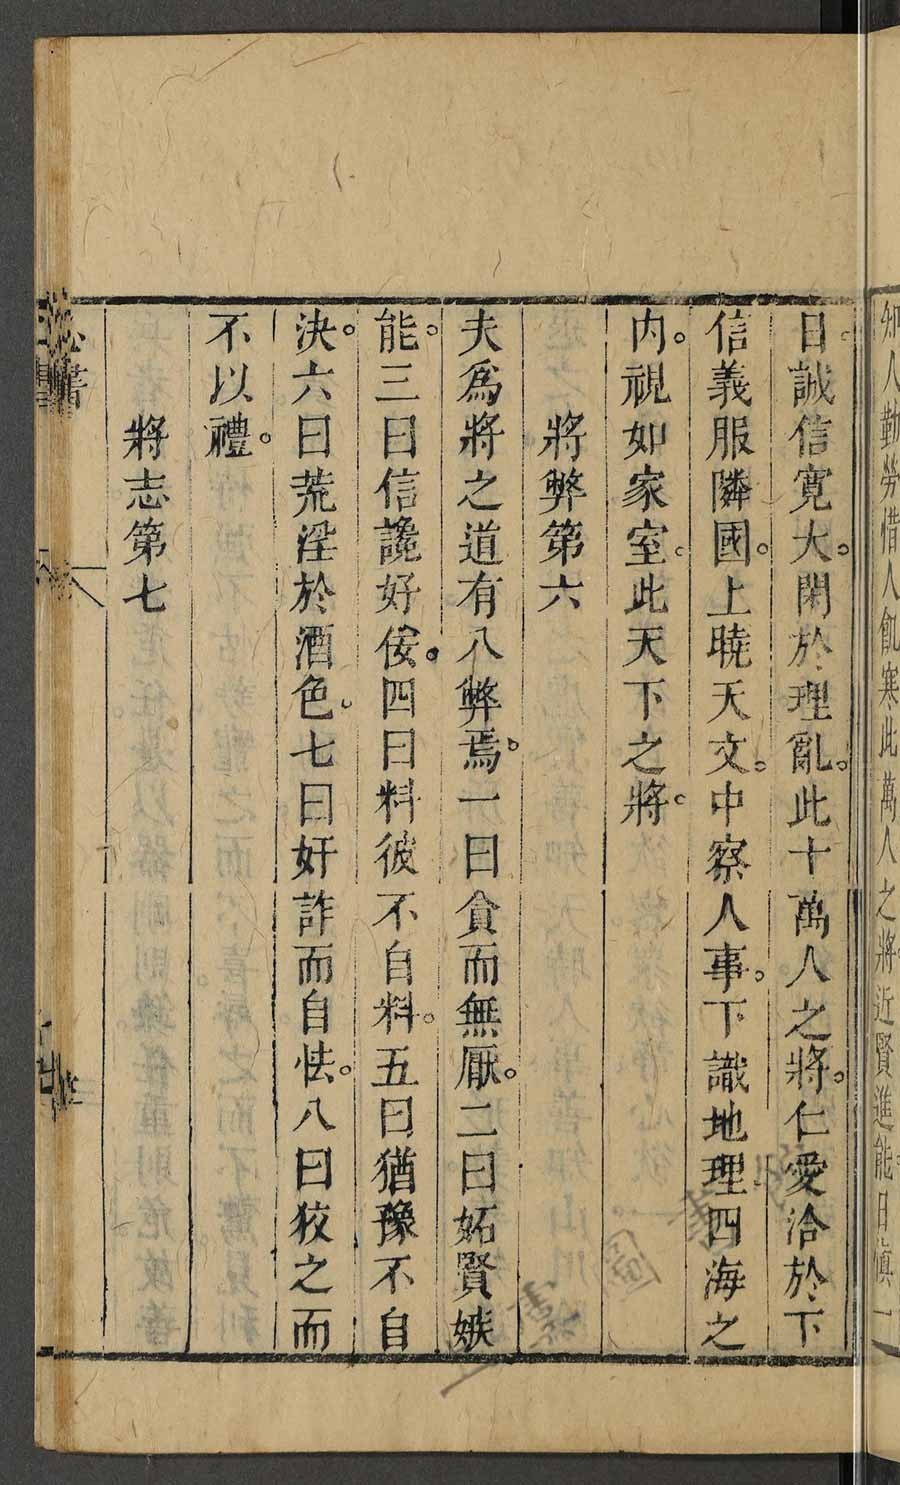 知人勤勞惜人飢寒此萬人之將。近賢進能日慎一
日。誠信寬大。閑於理亂。此十萬人之將。仁愛洽於下
信義服隣國。上曉天文。中察人事。下識地理四海之
内。視如家室。此天下之將。
將弊第六
夫爲將之道有八弊焉。一曰貪而無厭。二曰妬賢嫉
能。三曰信讒好佞。四曰料彼不自料。五曰猶豫不自
決。六曰荒淫於酒色。七曰奸詐而自怯。八曰狡之而
不以禮。
將志第七
心書